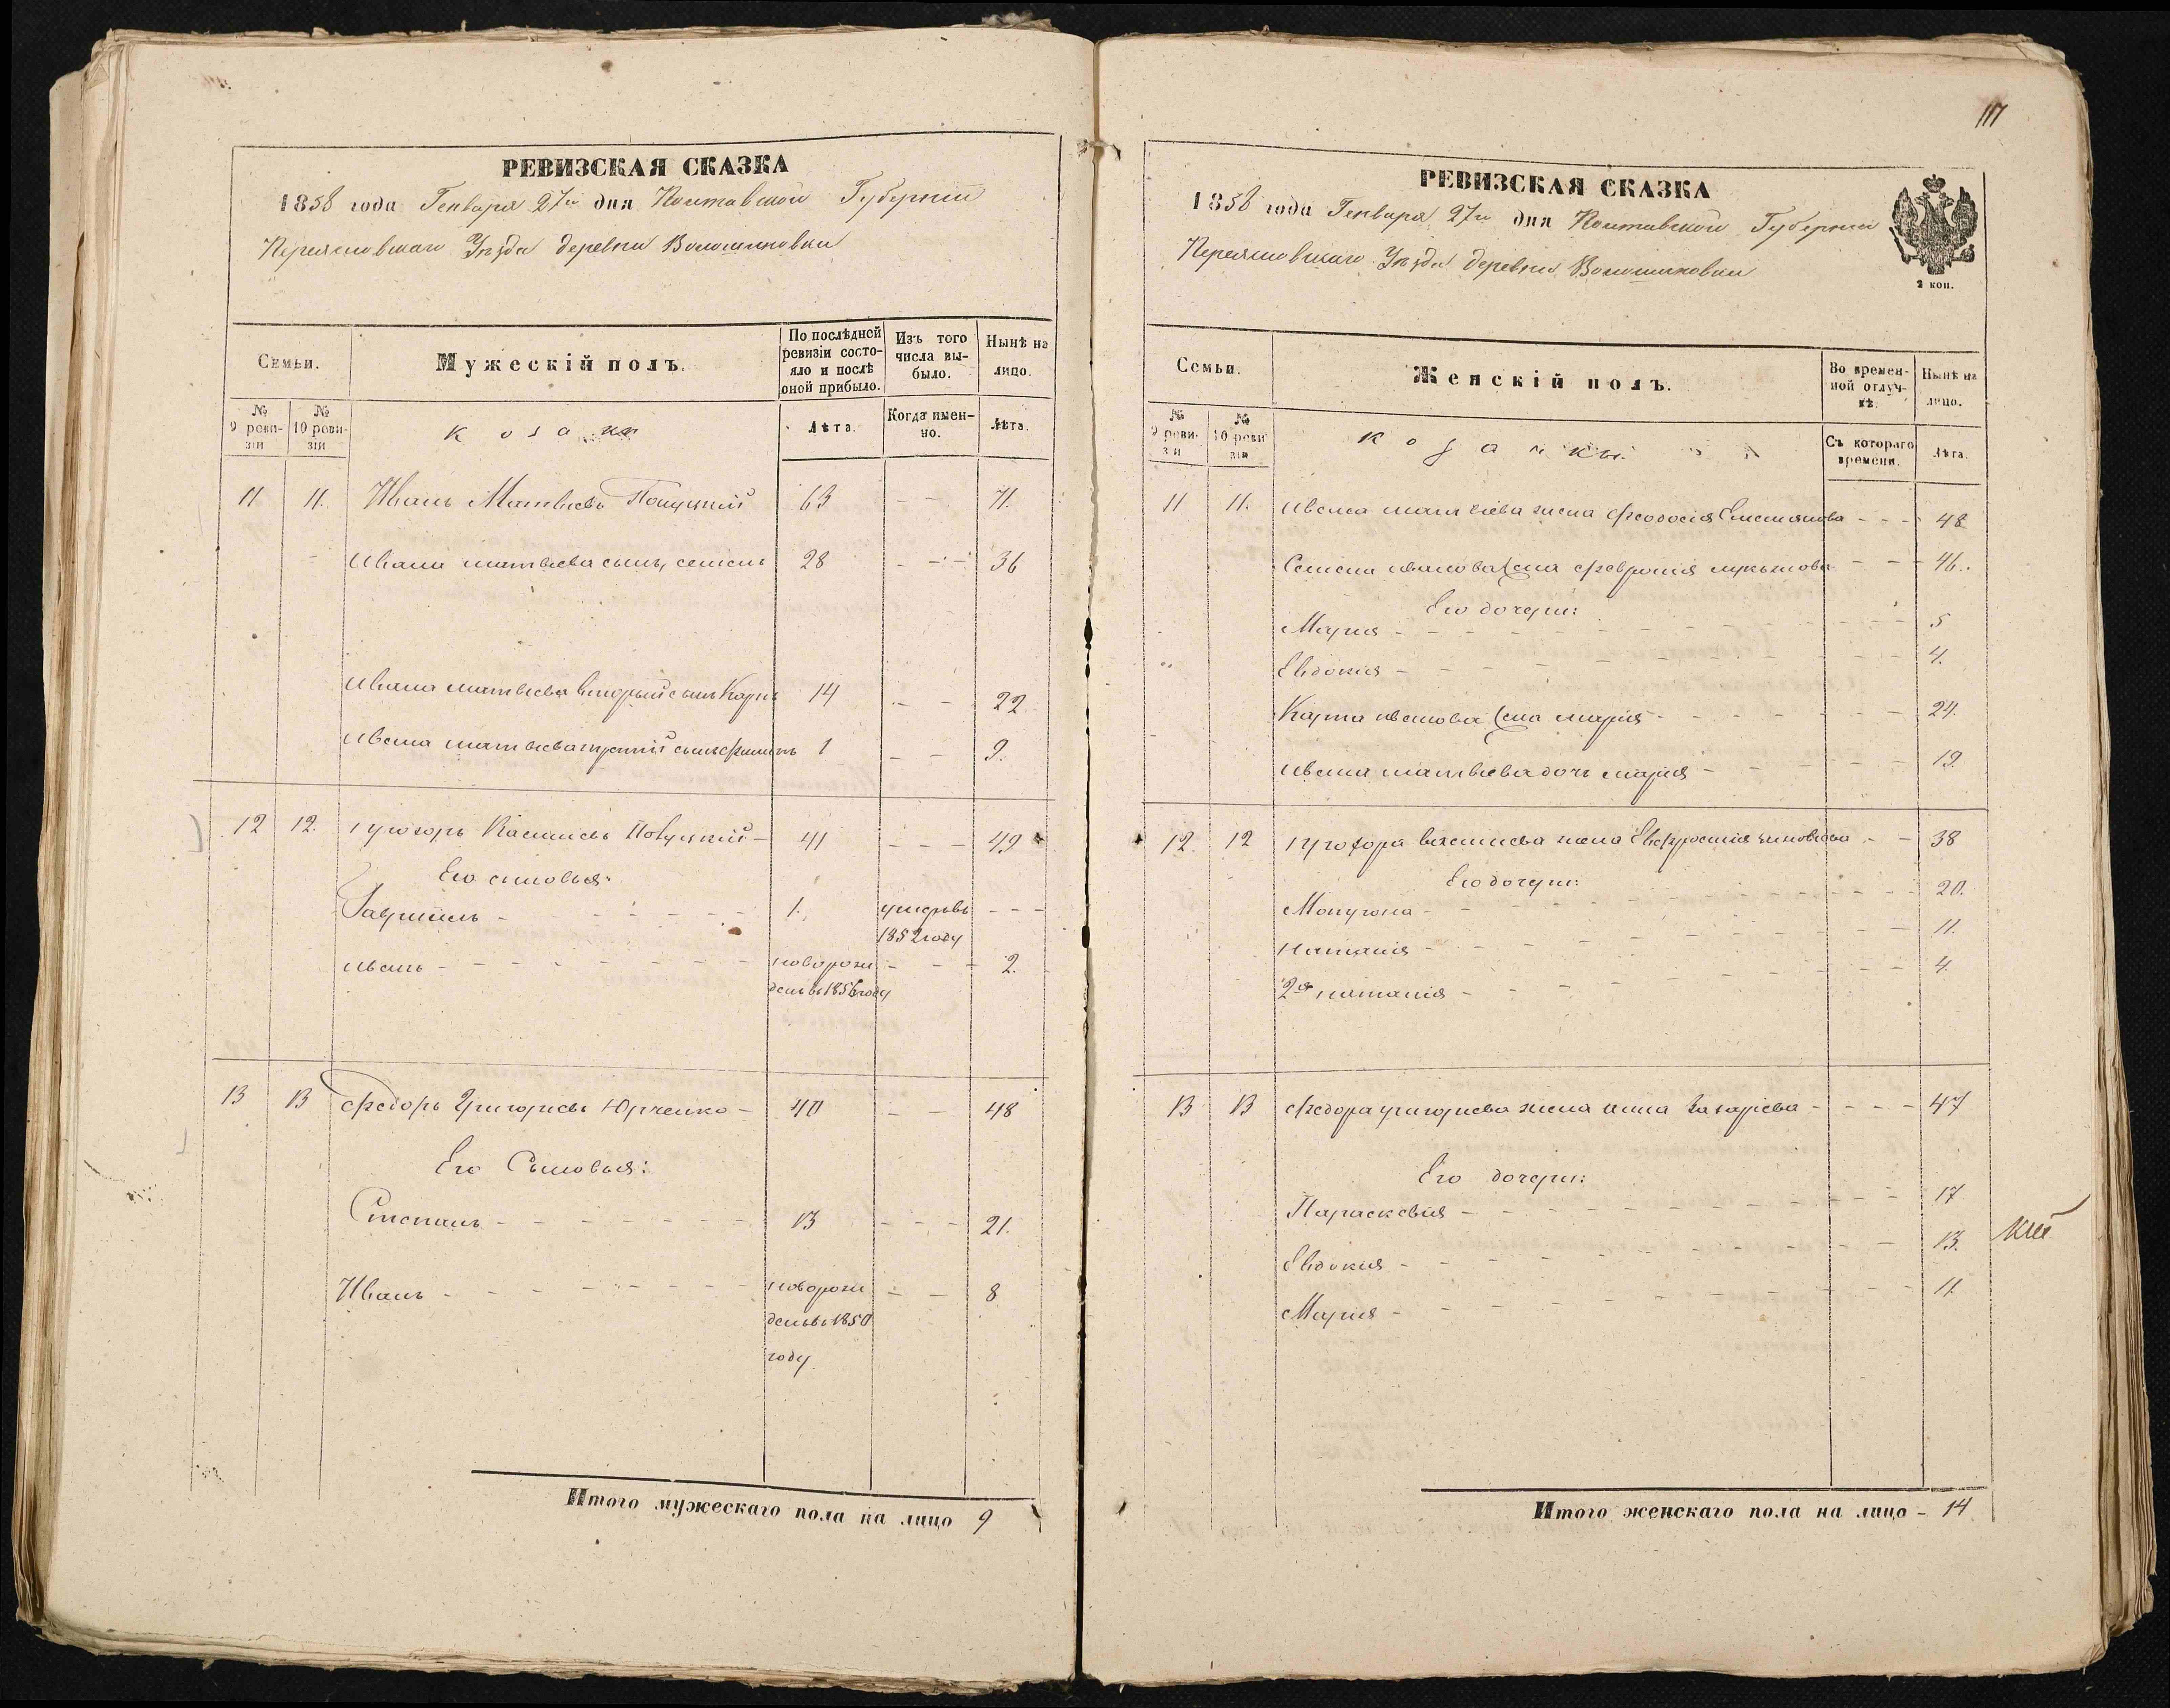 РЕВИЗСКАЯ СКАЗКА
1858 года Генваря 27го дня Полтавской Губерніи
Переясловскаго Уѣзда деревни Волошиновки
Семьи.
Мужескій полъ.
По послѣдней ревизіи состояло и послѣ оной прибыло.
Изъ того числа выбыло.
Нынѣ на лицо.
№ 9 ревизіи
№ 10 ревизіи
козаки
Лѣта.
Когда именно.
Лѣта.
11 11. Иванъ Матвѣевъ 63 - - 71.
Ивана матвѣева сынъ, семенъ 28 - - - 36
Ивана матвѣева вторый сынъ Карпъ 14 - - 22
Ивана матвѣева третій сынъ филипъ 1 - - 9.
12 12. прохоръ 41 - - - 49
Его сыновья:
Гавріилъ - - - - - 1. умеръ въ - - -
1852 году
иванъ - - - - - - новорож - - - 2.
денъ въ 1856 году
13 13 федоръ Григорьевъ Юрченко - 40 - - 48
Его Сыновья:
Степанъ - - - - - - - 13 - - - 21.
Иванъ - - - - - - новорож - - 8
денъ въ 1850
году
Итого мужескаго пола на лицо 9
117
РЕВИЗСКАЯ СКАЗКА
1858 года Генваря 27го дня Полтавской Губерніи
Переясловскаго Уѣзда деревни Волошиновки
2 коп.
Семьи.
Женскій полъ.
Во временной отлучкѣ.
Нынѣ на лицо.
№ 9 ревизіи
№ 10 ревизіи
козачки
Съ котораго времени.
Лѣта.
11 11. Ивана матвѣева жена феодосія Емельянова - - - 48
Семена иванова жена феврошія лукьянова - - - 46.
Его дочери:
Марія - - - - - - 5
Евдокія - - - - - - 4.
Карпа иванова жена марія - - - - - - 24.
ивана матвѣева дочь марія - - - - - - 19.
12. 12 прохора жена Ефросинія зиновіева - - 38
Его дочери:
- - - - - - 20.
наталія - - - - - - 11.
2я наталія - - - - - - 4.
13 13 федора григорьева жена анна Захаріева - - - - 47
Его дочери:
Параскевія - - - - - - 17
Евдокія - - - - - - 13.
Марія - - - - - - 11
Итого женскаго пола на лицо - 14